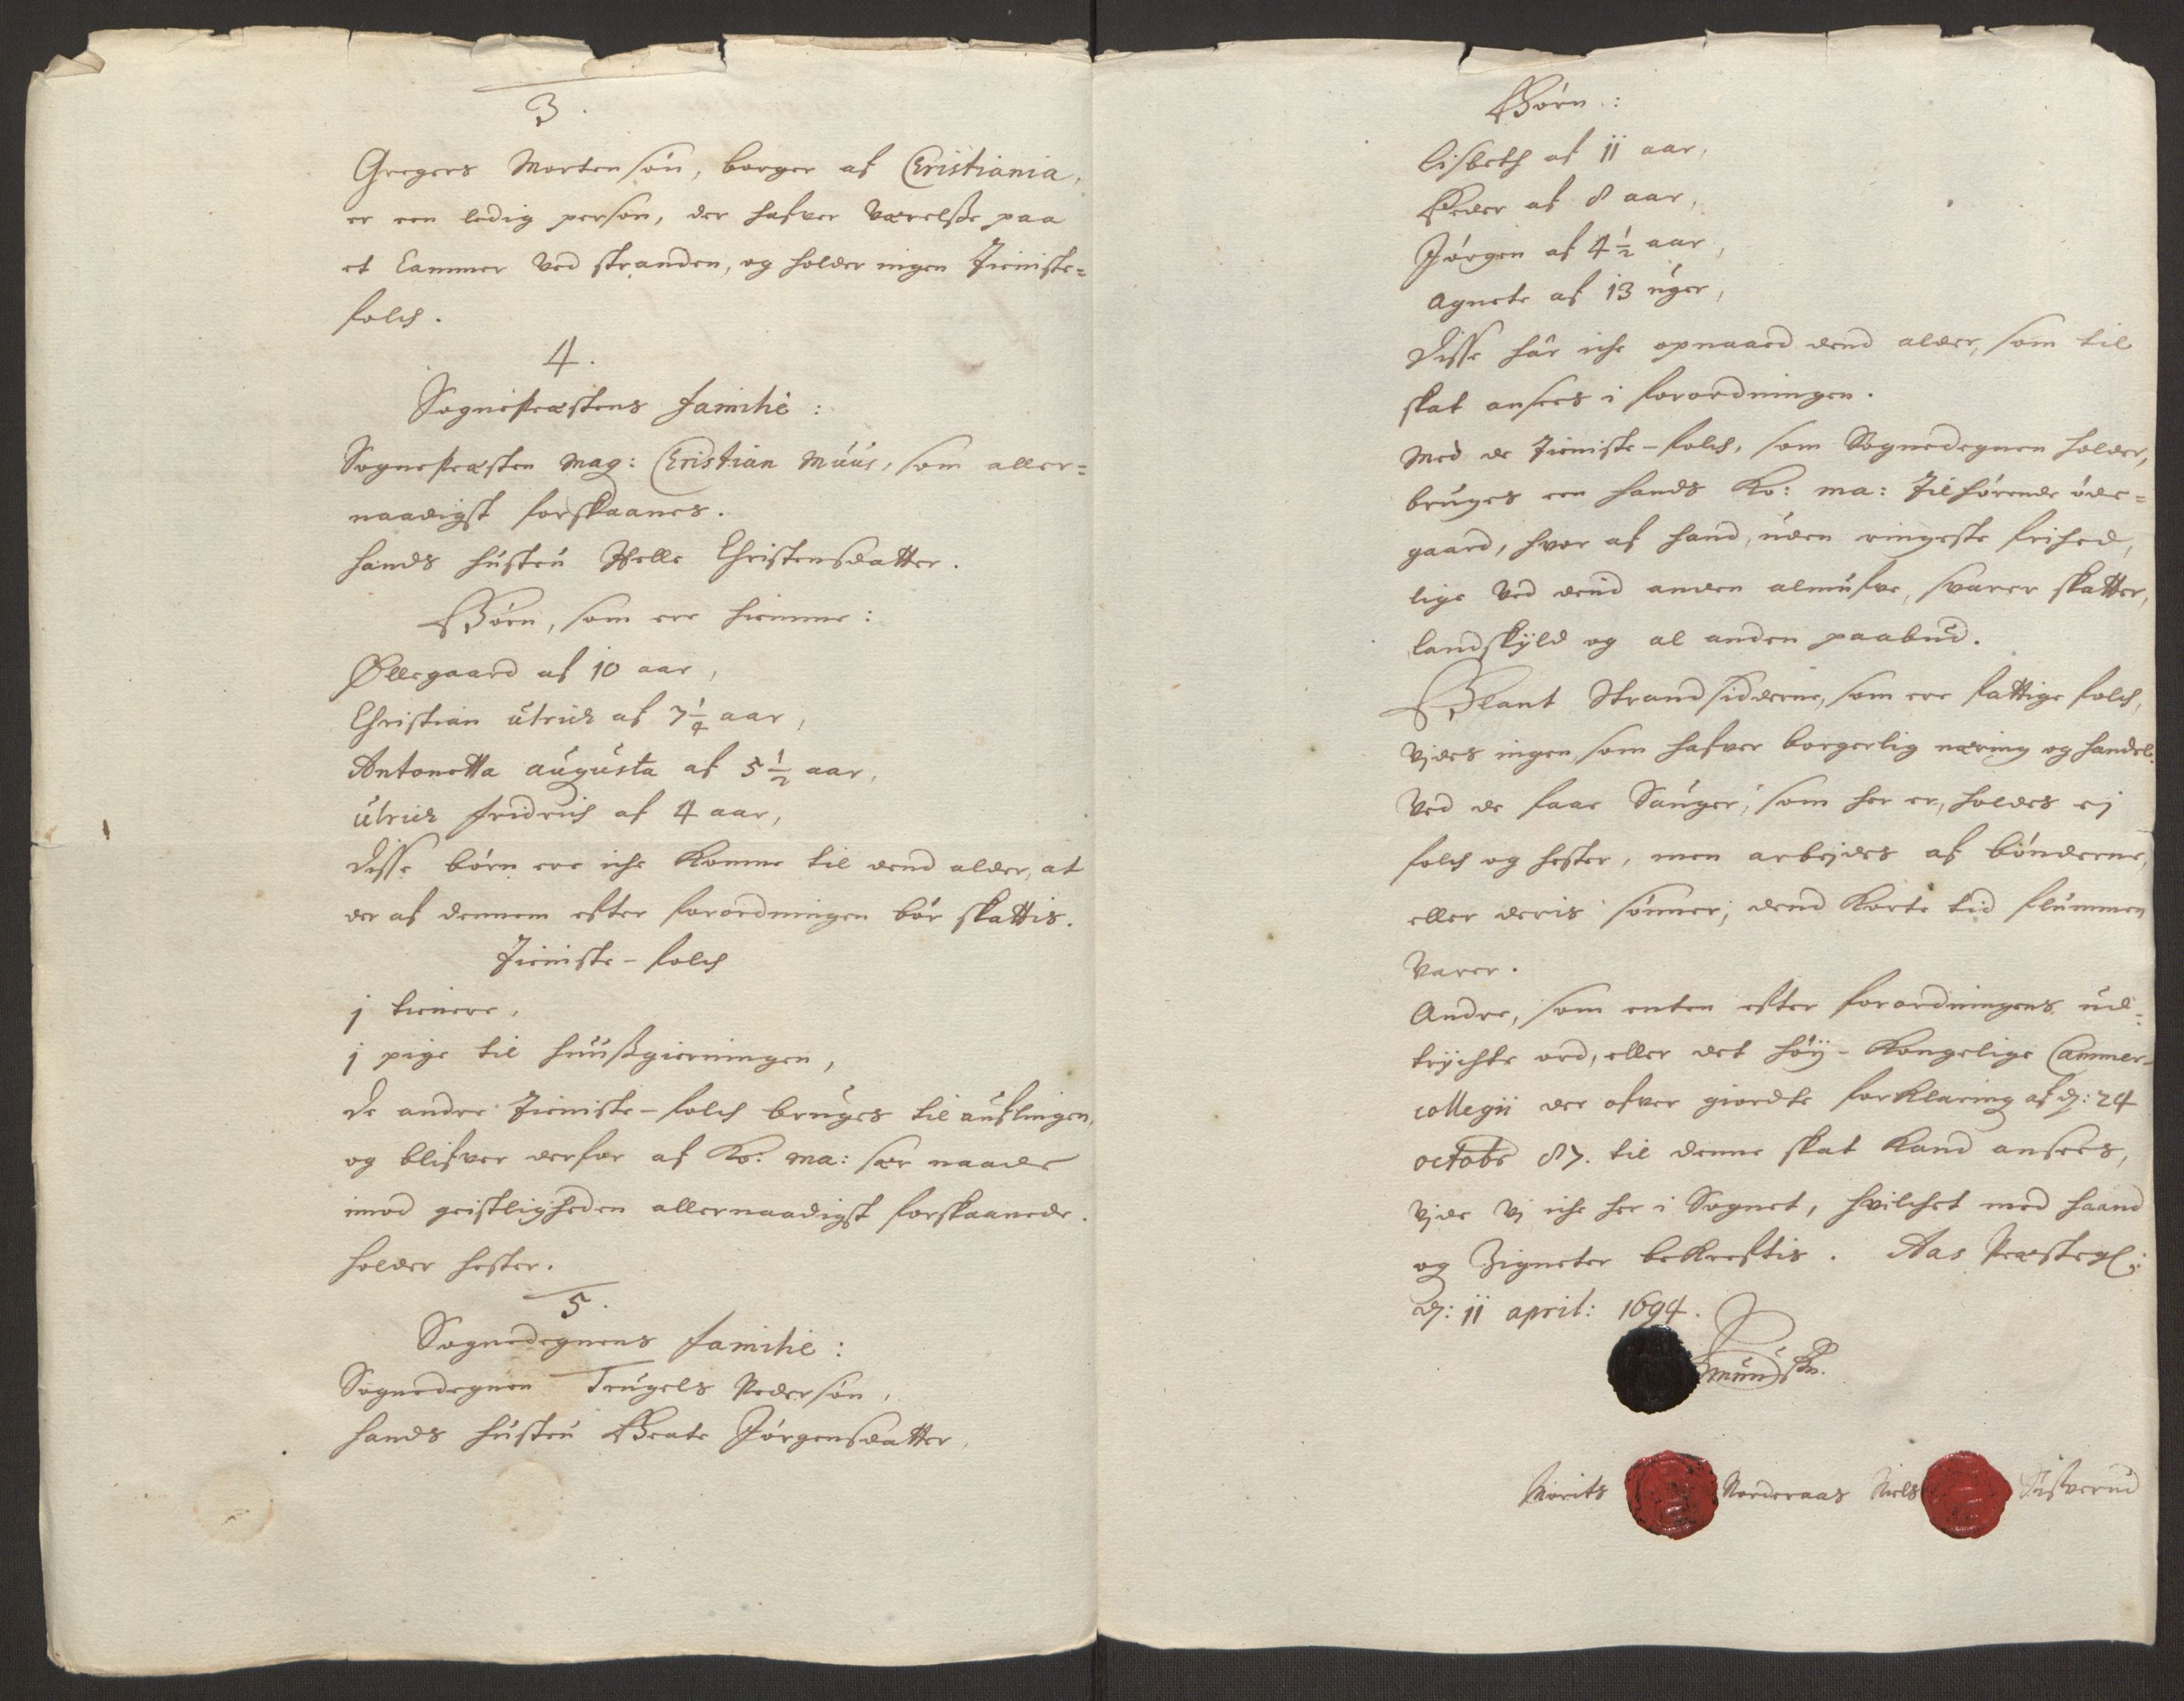 3.
Gregers Mortensøn, borger af Cristiania,
er een ledig person, der hafver Værelse paa
et Cammer Ved stranden, og holder ingen Tieniste=
folch.
4.
Sognepræstens familie:
Sognepræsten Mag: Cristian Muus, som aller=
naadigst forskaanes.
hands hustru Helle Christensdatter.
Børn, som ere hiemme:
Øllegaard af 10 aar,
Christian Ulrich af 7 1/4 aar,
Antonetta Augusta af 5 1/2 aar,
Ulrich Fridrich af 4 aar,
Disse børn ere iche Komne til dend alder, at
der af dennem efter forordningen bør skattis.
Tieniste-folch
j tienere,
j pige til huusgierningen,
De andre Tieniste-folch bruges til auflingen,
og blifver derfor af Ko: Ma: sær naade
imod geistligheden allernaadigst forskaanede.
holder hester.
5.
Sognedegnens familie:
Sognedegnen Trugels Pedersøn,
hands hustru Beate Jørgensdatter,
Børn:
Lisbeth af 11 aar,
Peder af 8 aar,
Jørgen af 4 1/2 aar,
Agnete af 13 uger,
Disse har iche opnaaed dend alder, som til
skat ansees i forordningen.
Med de Tieniste-folch, som Sognedegnen holder,
bruges een hands Ko: Ma: Tilhørende øde=
gaard, hvor af hand, uden ringeste frihed,
lige Ved dend anden almufve, svarer skatter,
landskyld og al anden paabud.
Blant Strandsidderne, som ere fattige folch,
Vides ingen, som hafver borgerlig næring og handel.
Ved de faae Sauger, som her er, holdes ej
folch og hester, men arbejdes af bønderne,
eller deris sønner; dend Korte tid flummen
Varer.
Andre, som enten efter forordningens ud=
trychte ord, eller det høy-Kongelige Cammer-
collegii der ofver giordte forklaring af d: 24
octobr 87. til denne skat Kand ansees,
Vide Vj iche her i Sognet, hvilchet med haand
og Zigneter bekreftis. Aas Præstegl:
d: 11 april: 1694.
Morits Norderaas Niels